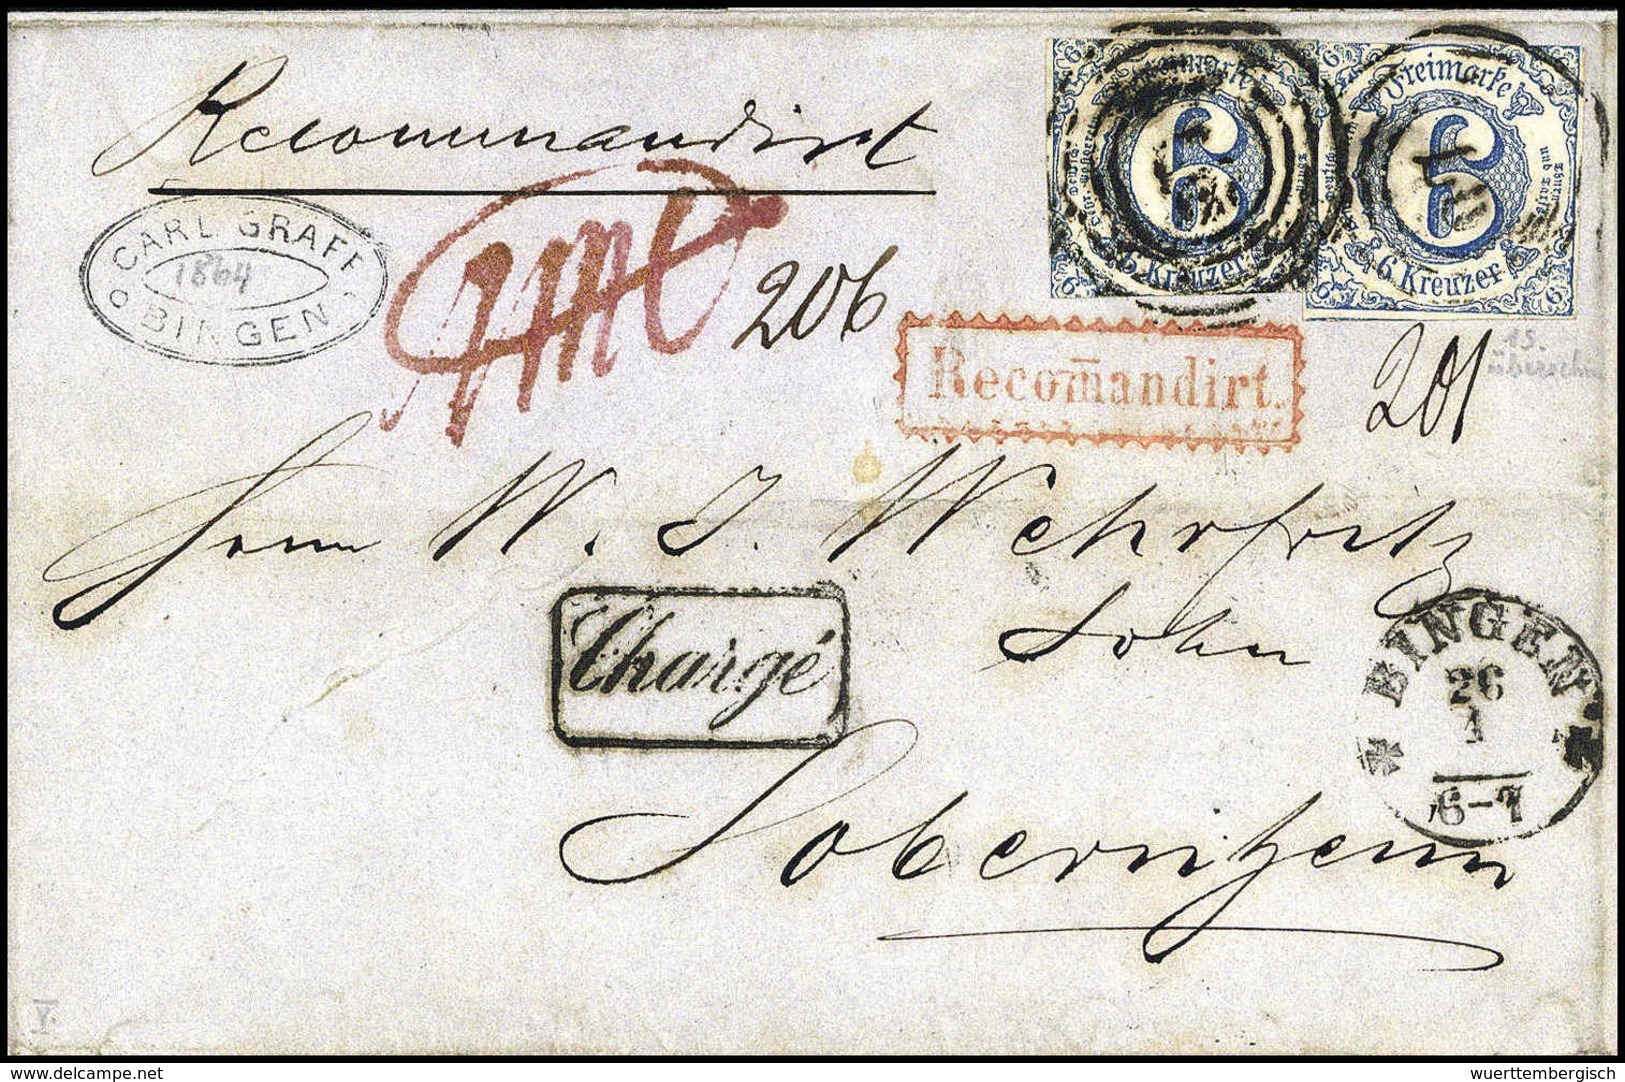 Recommandirt
6 6
Freimarke Freimarke
6
6
6. Kreuzer 6. Kreuzer
CARL GRAFF
1864
BINGEN
206
Recom̄andirt.
201
15.
Herrn W. J. Wehrfritz
Sohn
Chargé
BINGEN
26
1
6-7
Sobernheim
V.
www.delcampe.net
wuerttembergisch